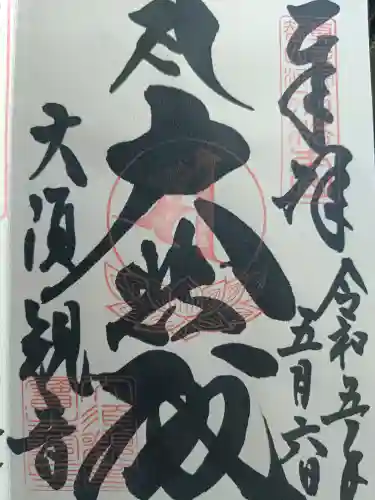 奉拝
令和五年
五月六日
大悲殿
大須観音